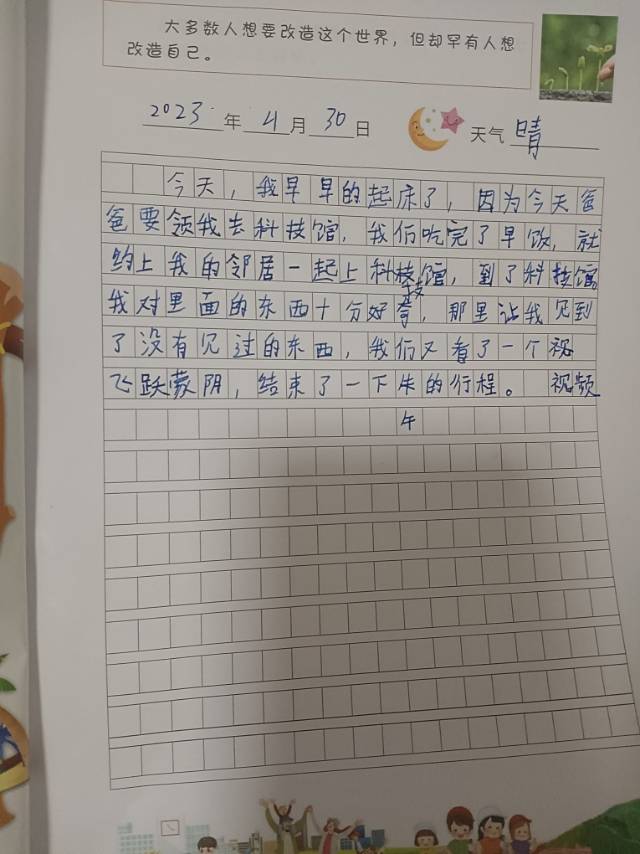 大多数人想要改造这个世界，但却罕有人想
改造自己。
2023年4月30日 天气 晴
今天，我早早的起床了，因为今天爸
爸要领我去科技馆，我们吃完了早饭，就
约上我的邻居一起上科技馆，到了科技馆
技
我对里面的东西十分好奇，那里让我见到
了没有见过的东西，我们又看了一个视
飞跃蒙阴，结束了一下午的行程。 视频
午